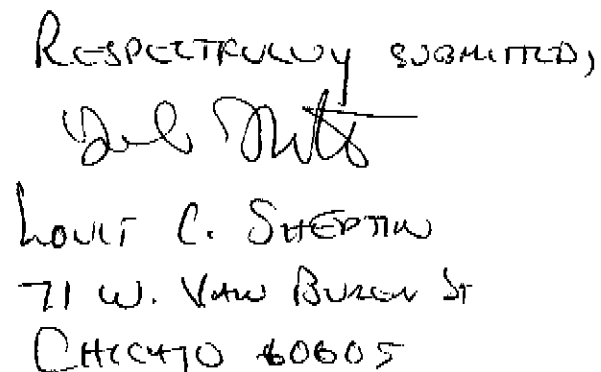 RESPECTFULLY SUBMITTED,
C. SHEPTIN
71 W. VAN BUREN ST
CHICAGO 60605